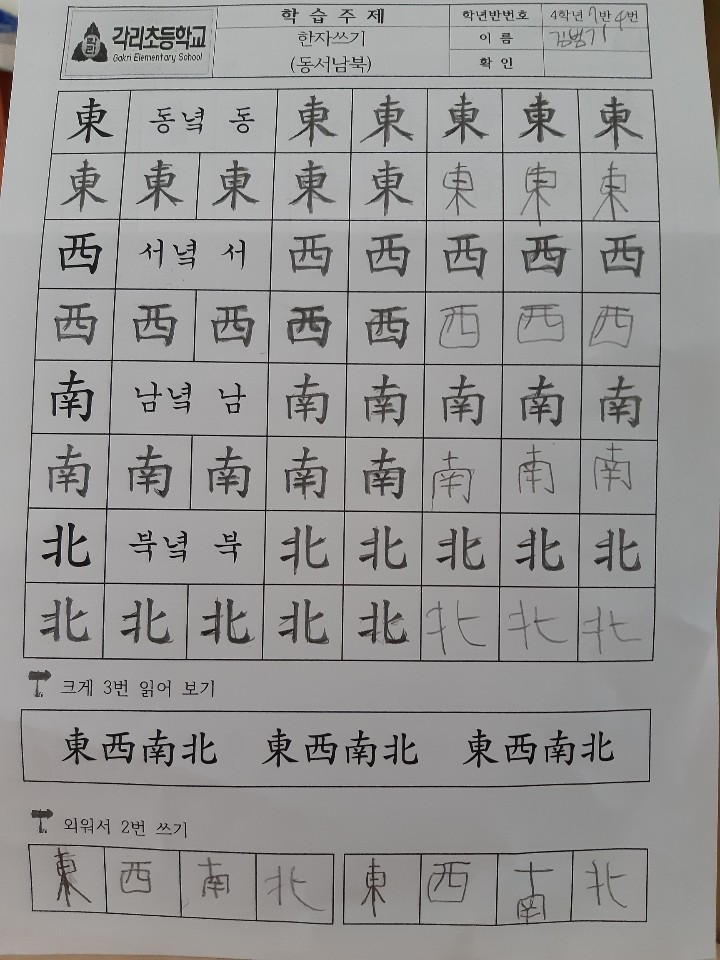 각리
각리초등학교
Gakri Elementary School
학 습 주 제
한자쓰기
(동서남북)
학년반번호 4학년 7반 4번
이 름 김범기
확 인
東 동녘 동 東 東 東 東 東
東 東 東 東 東 東 東 東
西 서녘 서 西 西 西 西 西
西 西 西 西 西 西 西 西
南 남녘 남 南 南 南 南 南
南 南 南 南 南 南 南 南
北 북녘 북 北 北 北 北 北
北 北 北 北 北 北 北 北
크게 3번 읽어 보기
東西南北 東西南北 東西南北
외워서 2번 쓰기
東 西 南 北 東 西 南 北